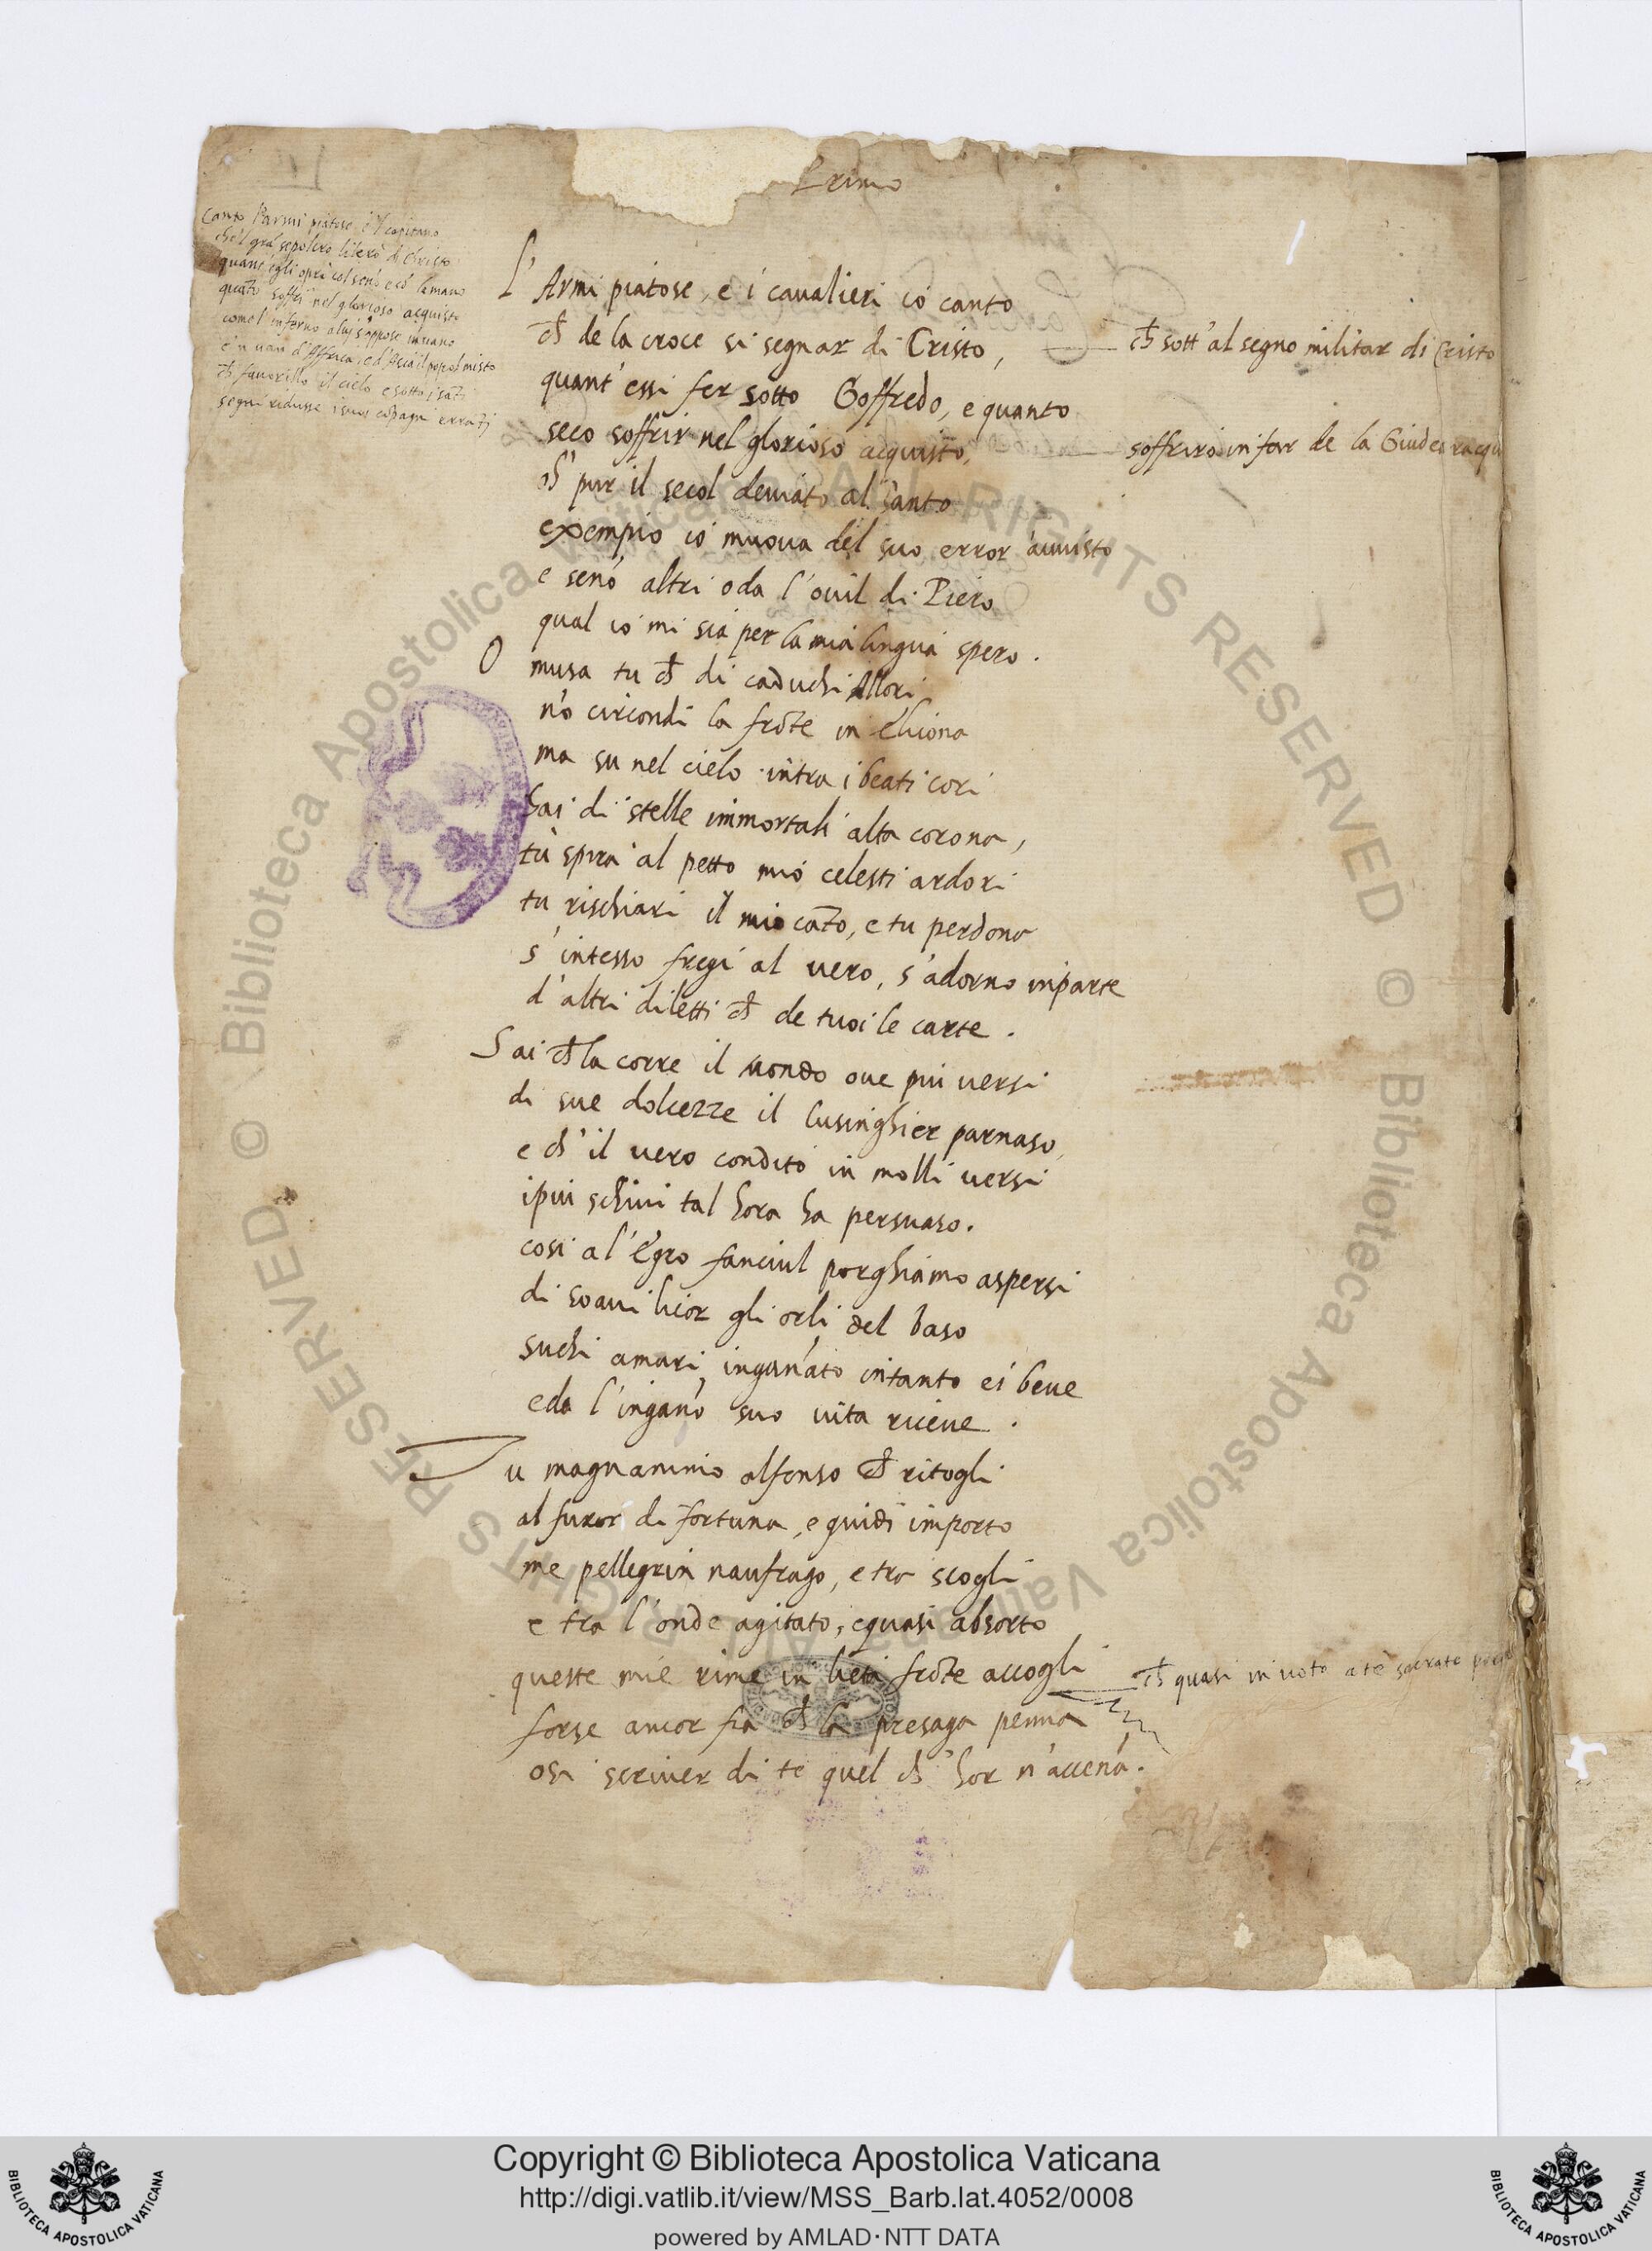 Primo
Canto l'armi piatose e 'l capitano
che 'l grã sepolcro liberò di Christo
quant'egli oprò col senõ e cõ la mano
quãto soffrì nel glorioso acquisto
com l'inferno a lui s'oppose in vano
e'n van d'Affrica, e d'Asia il popol misto
ch̃ favorillo il cielo e sotto i sãti
segni ridusse i suoi cõpagni errãti
L' Armi piatose, e i cavalieri io canto
ch̃ de la croce si segnar di Cristo,
ch̃ sott'al segno militar di Cristo
quant'essi fer sotto Goffredo, e quanto
seco soffrir nel glorioso acquisto,
soffrirõ in far de la Giudea racqu
ch̃' pur il secol deviato al santo
exempio io muova del suo error avvisto
e senõ altri oda l'ovil di Piero
qual io mi sia per la mia lingua spero.
O musa tu ch̃ di caduchi Allori
nõ circondi la frõte in Elicona
ma su nel cielo intra i beati cori
hai di stelle immortali alta corona,
tù spira al petto mio celesti ardori
tu rischiari il mio cãto, e tu perdona
s'intesso fregi al vero, s'adorno in parte
d'altri diletti ch̃ de tuoi le carte.
Sai ch̃ la corre il mondo ove piu versi
di sue dolcezze il lusinghier parnaso,
e ch̃' il vero condito in molli versi
i piu schivi tal hora ha persuaso.
cosi a l'Egro fanciul porghiamo aspersi
di soavi licor gli orli del vaso
suchi amari, ingañato intanto ei beve
e da l'ingaño suo vita riceve.
Tu magnanimo alfonso ch̃ ritogli
al furor di fortuna, e guidi in porto
me pellegrin naufrago, e tra scogli
e tra l'onde agitato, e quasi absorto
queste mie rime in lieta frõte accogli
ch̃ quasi in voto a te sacrate
forse ancor fia ch̃ la presaga penna
osi scriver di te quel ch̃' hor n'acceña.
© Biblioteca Apostolica Vaticana ALL RIGHTS RESERVED © Biblioteca Apostolica Vaticana ALL RIGHTS RESERVED
Copyright © Biblioteca Apostolica Vaticana
http://digi.vatlib.it/view/MSS_Barb.lat.4052/0008
powered by AMLAD·NTT DATA
BIBLIOTECA APOSTOLICA VATICANA
BIBLIOTECA APOSTOLICA VATICANA